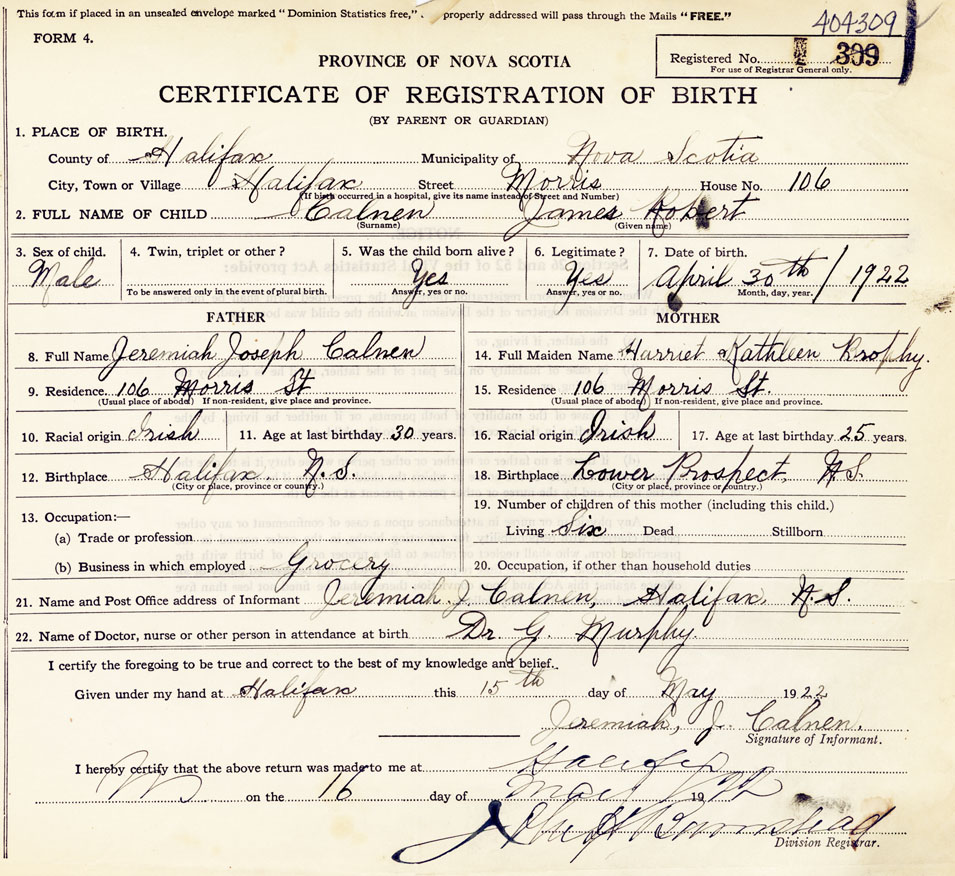 This form if placed in an unsealed envelope marked "Dominion Statistics free," properly addressed will pass through the Mails "FREE."
404309
FORM 4.
Registered No. 309
For use of Registrar General only.
PROVINCE OF NOVA SCOTIA
CERTIFICATE OF REGISTRATION OF BIRTH
(BY PARENT OR GUARDIAN)
1. PLACE OF BIRTH.
County of Halifax Municipality of Nova Scotia
City, Town or Village Halifax Street Morris House No. 106
(If birth occurred in a hospital, give its name instead of Street and Number)
2. FULL NAME OF CHILD Calnen James Robert
(Surname) (Given name)
3. Sex of child. 4. Twin, triplet or other? 5. Was the child born alive? 6. Legitimate? 7. Date of birth.
Male Yes Yes April 30th / 1922
To be answered only in the event of plural birth. Answer, yes or no. Answer, yes or no. Month, day, year.
FATHER
8. Full Name Jeremiah Joseph Calnen
9. Residence 106 Morris St
(Usual place of abode) If non-resident, give place and province.
10. Racial origin Irish 11. Age at last birthday 30 years.
12. Birthplace Halifax. N.S.
(City or place, province or country.)
13. Occupation:—
(a) Trade or profession
(b) Business in which employed Grocery
MOTHER
14. Full Maiden Name Harriet Kathleen Brophy.
15. Residence 106 Morris St.
(Usual place of abode) If non-resident, give place and province.
16. Racial origin Irish 17. Age at last birthday 25 years.
18. Birthplace Lower Prospect, N.S.
(City or place, province or country.)
19. Number of children of this mother (including this child.)
Living Six Dead Stillborn
20. Occupation, if other than household duties
21. Name and Post Office address of Informant Jeremiah J. Calnen, Halifax N.S.
22. Name of Doctor, nurse or other person in attendance at birth Dr. G. Murphy.
I certify the foregoing to be true and correct to the best of my knowledge and belief.
Given under my hand at Halifax this 15th day of May 1922
Jeremiah, J. Calnen.
Signature of Informant.
I hereby certify that the above return was made to me at Halifax
on the 16 day of May 1922
Division Registrar.